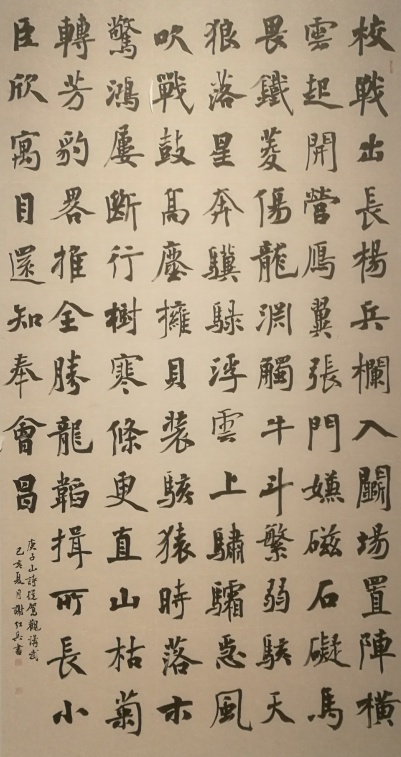 校戰出長楊兵欄入鬭場置陣橫
雲起開營鴈翼張門嫌磁石礙馬
畏鐵菱傷龍渊觸牛斗繁弱駭天
狼落星奔驥騄浮雲上驌驦急風
吹戰鼓髙塵擁貝裝駭猿時落木
驚鴻屢斷行樹寒條更直山枯菊
轉芳豹畧推全勝龍韜揖所長小
臣欣寓目還知奉會昌
庾子山詩從駕觀講武
己亥夏月謝紅兵書